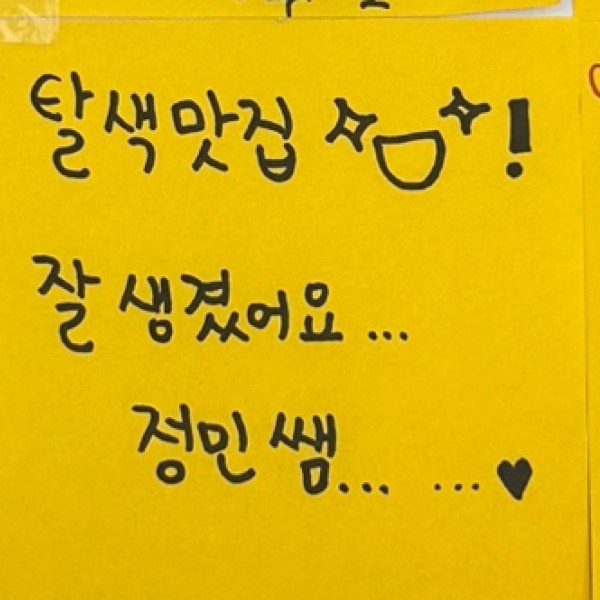 탈색맛집 !
잘 생겼어요...
정민 쌤... ...♥